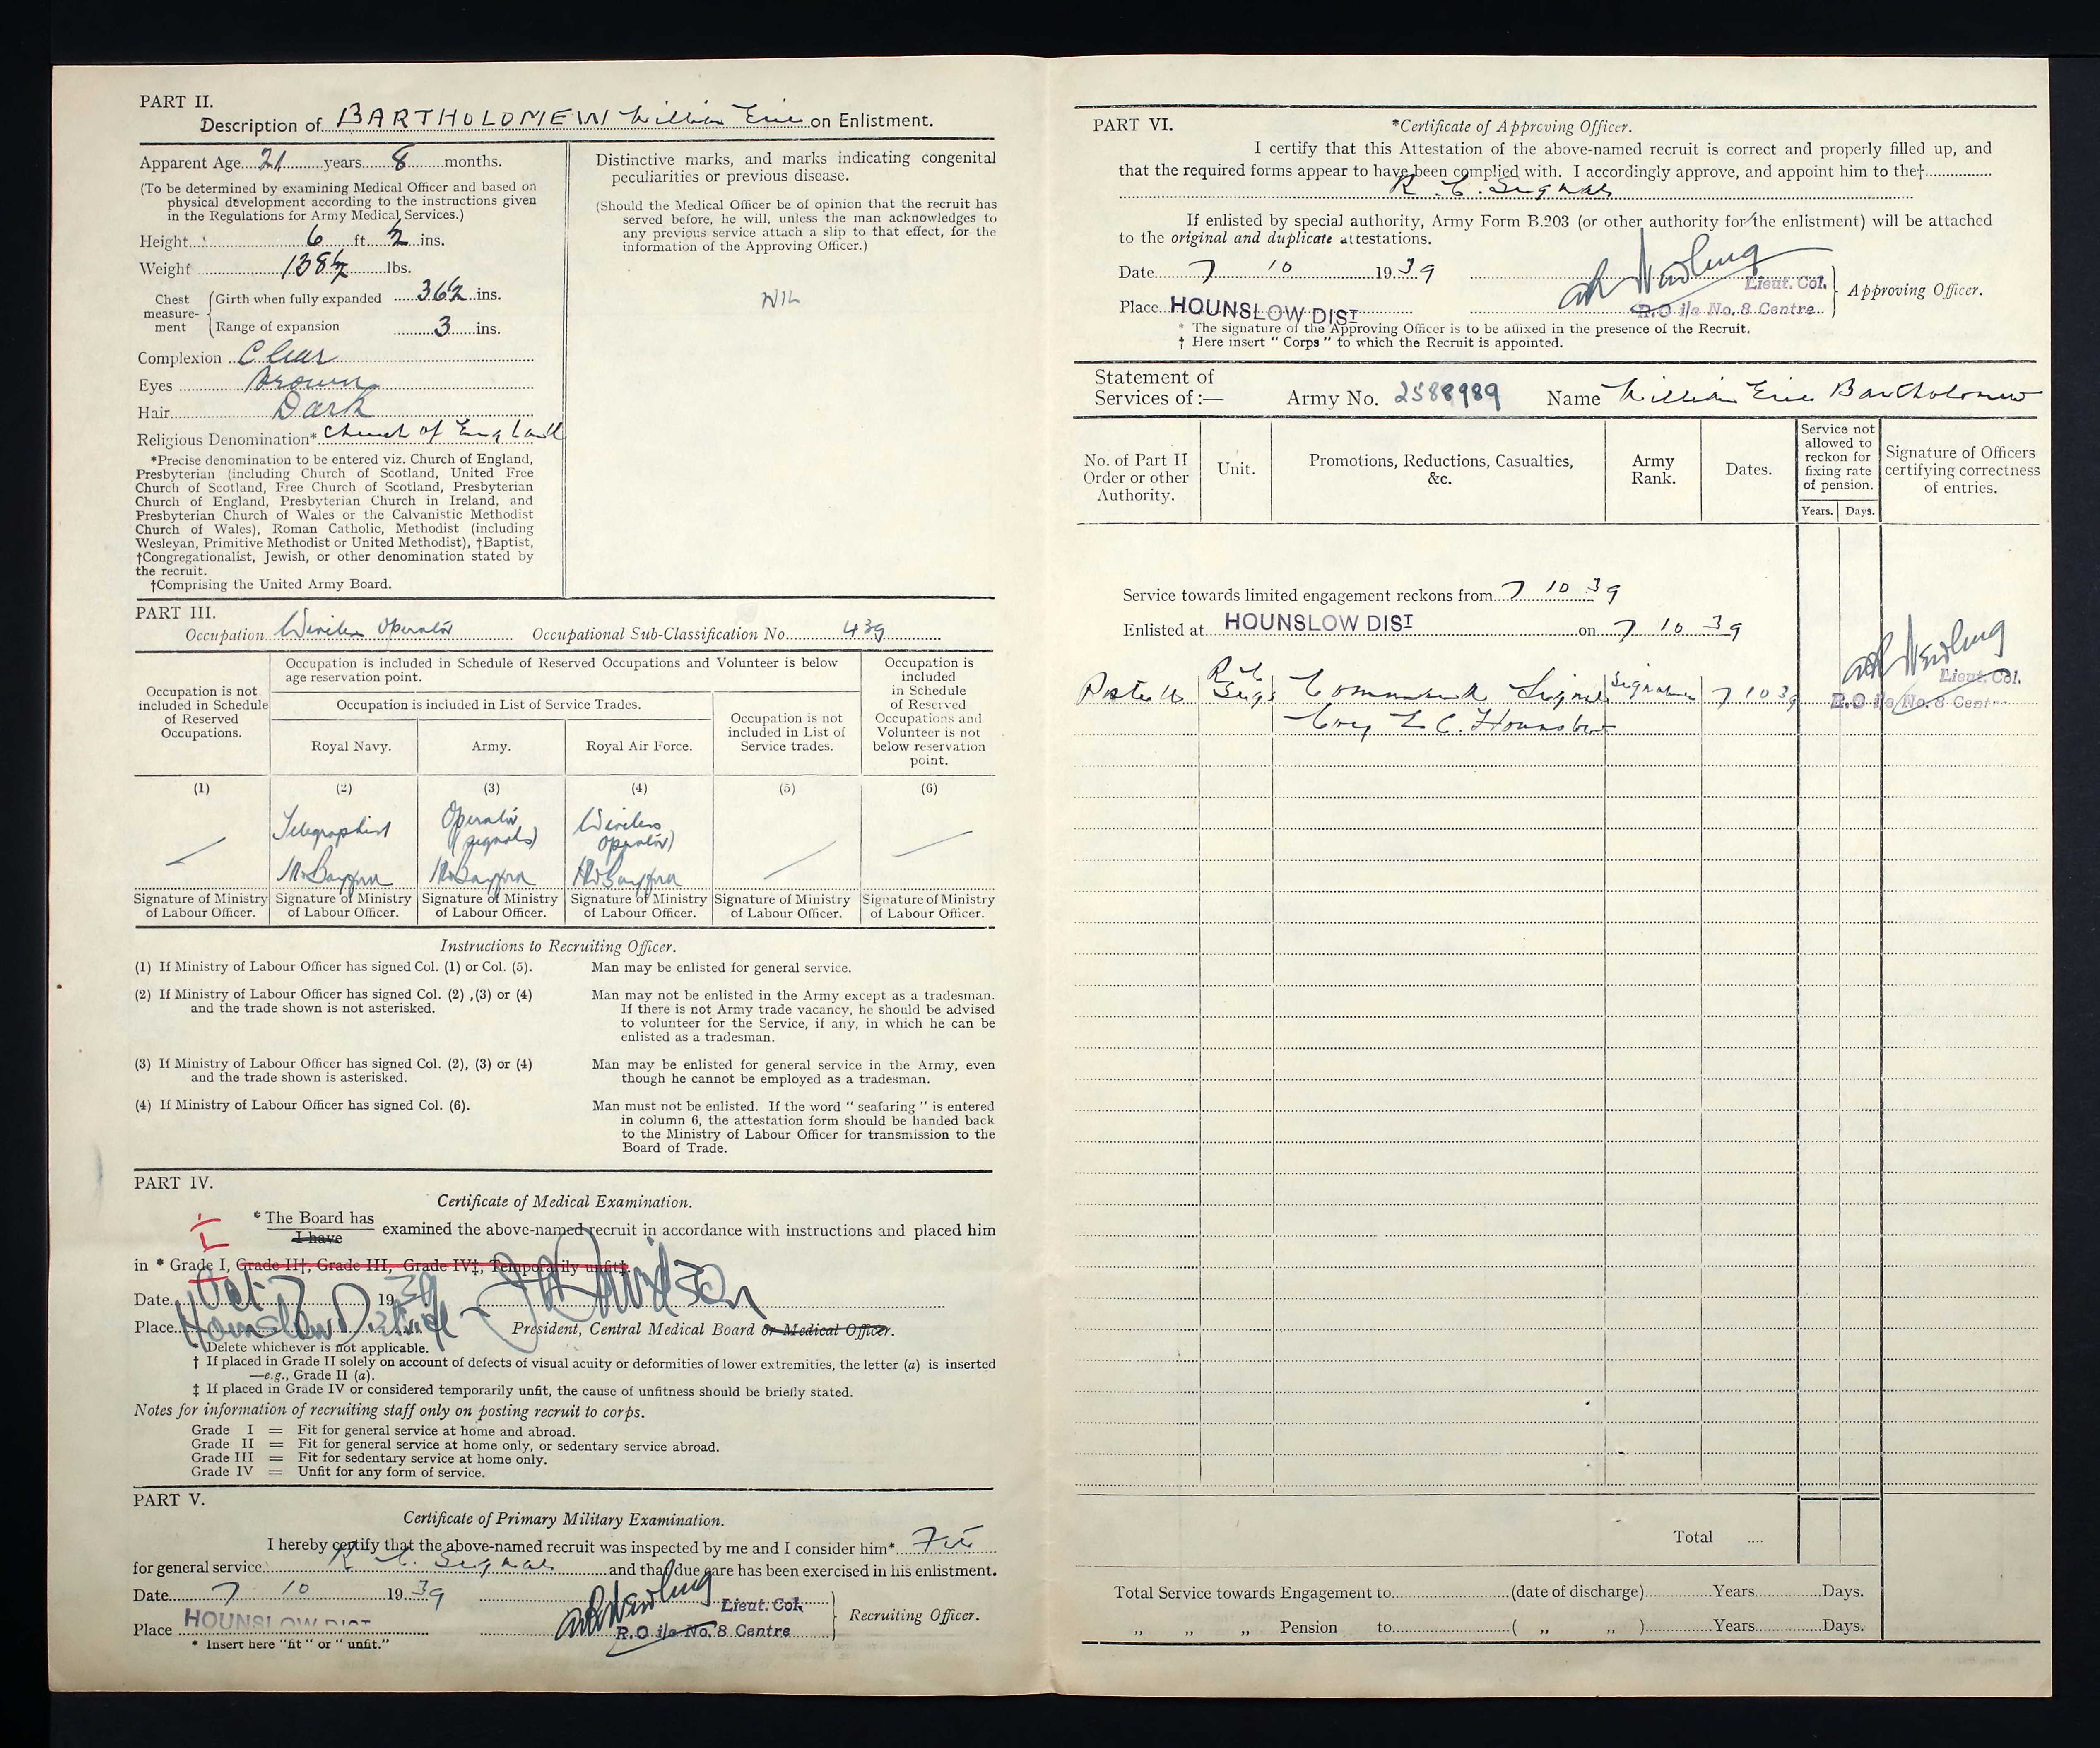 PART II.
Description of BARTHOLOMEW William Eric on Enlistment.
Apparent Age 21 years 8 months.
(To be determined by examining Medical Officer and based on
physical development according to the instructions given
in the Regulations for Army Medical Services.)
Height 6 ft. ½ ins.
Weight 138½ lbs.
Chest measurement { Girth when fully expanded 36½ ins.
Range of expansion 3 ins.
Complexion Clear
Eyes Brown
Hair Dark
Religious Denomination* Church of England
*Precise denomination to be entered viz. Church of England,
Presbyterian (including Church of Scotland, United Free
Church of Scotland, Free Church of Scotland, Presbyterian
Church of England, Presbyterian Church in Ireland, and
Presbyterian Church of Wales or the Calvanistic Methodist
Church of Wales), Roman Catholic, Methodist (including
Wesleyan, Primitive Methodist or United Methodist), †Baptist,
†Congregationalist, Jewish, or other denomination stated by
the recruit.
†Comprising the United Army Board.
Distinctive marks, and marks indicating congenital
peculiarities or previous disease.
(Should the Medical Officer be of opinion that the recruit has
served before, he will, unless the man acknowledges to
any previous service attach a slip to that effect, for the
information of the Approving Officer.)
NIL
PART III.
Occupation Wireless Operator Occupational Sub-Classification No. 439
Occupation is not
included in Schedule
of Reserved
Occupations.
Occupation is included in Schedule of Reserved Occupations and Volunteer is below
age reservation point.
Occupation is included in List of Service Trades.
Royal Navy. Army. Royal Air Force.
Occupation is not
included in List of
Service trades.
Occupation is
included
in Schedule
of Reserved
Occupations and
Volunteer is not
below reservation
point.
(1) (2) (3) (4) (5) (6)
Telegraphist
Operator
(signals)
Wireless
operator)
Signature of Ministry
of Labour Officer.
Signature of Ministry
of Labour Officer.
Signature of Ministry
of Labour Officer.
Signature of Ministry
of Labour Officer.
Signature of Ministry
of Labour Officer.
Signature of Ministry
of Labour Officer.
Instructions to Recruiting Officer.
(1) If Ministry of Labour Officer has signed Col. (1) or Col. (5). Man may be enlisted for general service.
(2) If Ministry of Labour Officer has signed Col. (2) ,(3) or (4)
and the trade shown is not asterisked.
Man may not be enlisted in the Army except as a tradesman.
If there is not Army trade vacancy, he should be advised
to volunteer for the Service, if any, in which he can be
enlisted as a tradesman.
(3) If Ministry of Labour Officer has signed Col. (2), (3) or (4)
and the trade shown is asterisked.
Man may be enlisted for general service in the Army, even
though he cannot be employed as a tradesman.
(4) If Ministry of Labour Officer has signed Col. (6).
Man must not be enlisted. If the word "seafaring" is entered
in column 6, the attestation form should be handed back
to the Ministry of Labour Officer for transmission to the
Board of Trade.
PART IV.
Certificate of Medical Examination.
* The Board has
I have
examined the above-named recruit in accordance with instructions and placed him
in * Grade I, Grade II†, Grade III, Grade IV‡, Temporarily unfit‡.
Date Oct 7 1939 Davidson
Place Hounslow District President, Central Medical Board or Medical Officer.
*Delete whichever is not applicable.
† If placed in Grade II solely on account of defects of visual acuity or deformities of lower extremities, the letter (a) is inserted
—e.g., Grade II (a).
‡ If placed in Grade IV or considered temporarily unfit, the cause of unfitness should be briefly stated.
Notes for information of recruiting staff only on posting recruit to corps.
Grade I = Fit for general service at home and abroad.
Grade II = Fit for general service at home only, or sedentary service abroad.
Grade III = Fit for sedentary service at home only.
Grade IV = Unfit for any form of service.
PART V.
Certificate of Primary Military Examination.
I hereby certify that the above-named recruit was inspected by me and I consider him* Fit
for general service R. C. Signals and that due care has been exercised in his enlistment.
Date 7 10 1939
Lieut. Col.
Place HOUNSLOW DIST R.O i/c No. 8 Centre } Recruiting Officer.
* Insert here "fit" or "unfit."
PART VI. *Certificate of Approving Officer.
I certify that this Attestation of the above-named recruit is correct and properly filled up, and
that the required forms appear to have been complied with. I accordingly approve, and appoint him to the†
R. C. Signals
If enlisted by special authority, Army Form B.203 (or other authority for the enlistment) will be attached
to the original and duplicate attestations.
Date 7 10 1939
Lieut. Col.
Place HOUNSLOW DIST R.O i/c No. 8 Centre } Approving Officer.
* The signature of the Approving Officer is to be affixed in the presence of the Recruit.
† Here insert "Corps" to which the Recruit is appointed.
Statement of
Services of :— Army No. 2588989 Name William Eric Bartholomew
No. of Part II
Order or other
Authority.
Unit.
Promotions, Reductions, Casualties,
&c.
Army
Rank.
Dates.
Service not
allowed to
reckon for
fixing rate
of pension.
Years. Days.
Signature of Officers
certifying correctness
of entries.
Service towards limited engagement reckons from 7 10 39
Enlisted at HOUNSLOW DIST on 7 10 39
Posted to R C Sigs Command Signal Signalman 7 10 39
Coy E C. Hounslow
Lieut. Col.
R.O i/c No. 8 Centre
Total ....
Total Service towards Engagement to (date of discharge) Years Days.
„ „ „ Pension to ( „ „ ) Years Days.